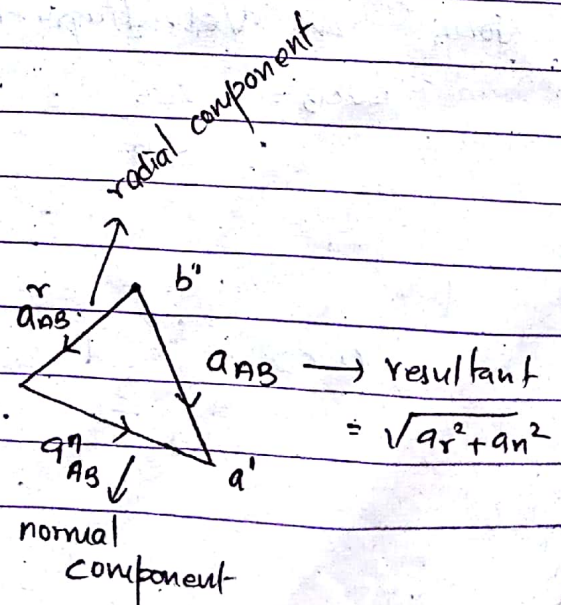 radial component
b"
r
aAB
aAB → resultant
= √ar²+an²
anAB
a'
normal
component